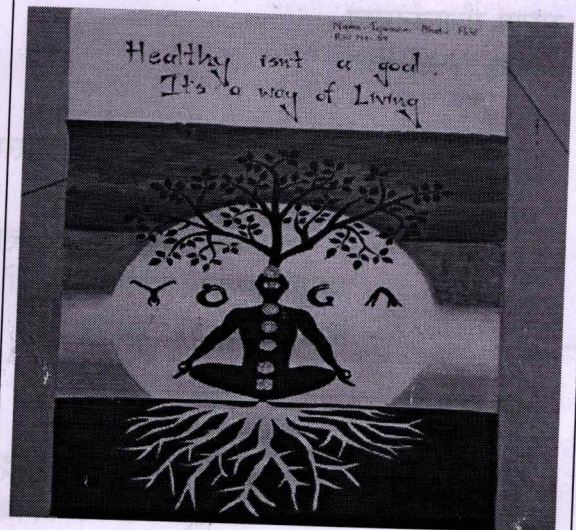 Name-
Roll No.
Healthy isn't a goal.
It's a way of Living
YOGA